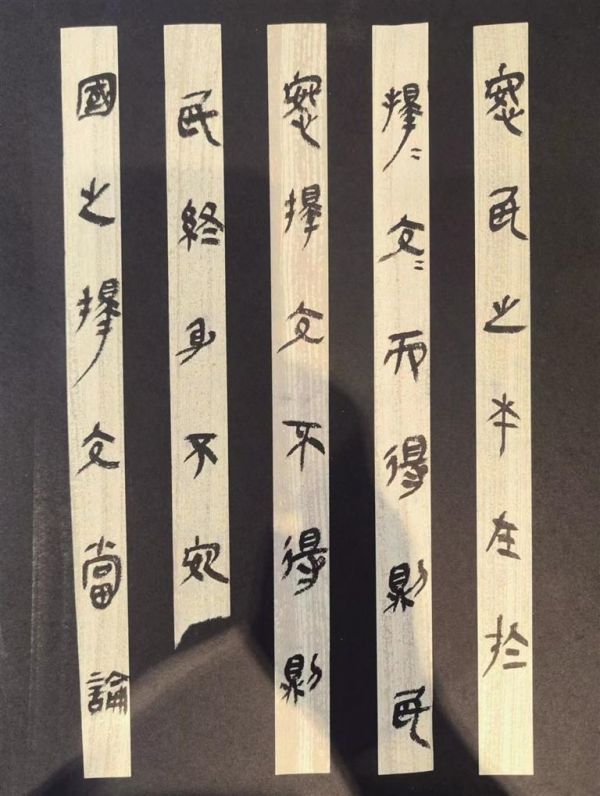 民之本在於
擇=文=而得則民
擇文不得則
民終身不安
國之擇文當論